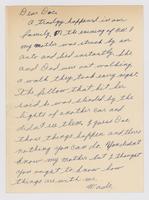 Dear Bob:
A tradgy happened in our
family, the evening of Oct 1
my mother was struck by an
auto and died instantly. She
and Dad were out walking
a walk they took every night
the fellow that hit her
said he was blinded by the
lights of another car and
didn't see them. I guess Bob
those things happen and there
nothing you can do. You didn't
know my mother but I thought
you ought to know how
things are with me.